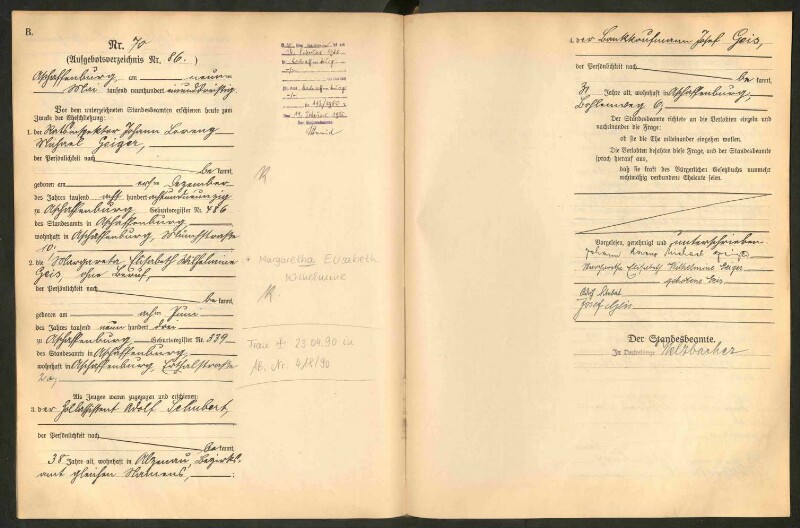 B.
Nr. 70
(Aufgebotsverzeichnis Nr. 86.)
Aschaffenburg, am neunten
Mai tausend neunhundert einunddreißig
Vor dem unterzeichneten Standesbeamten erschienen heute zum
Zwecke der Eheschließung:
1. der Johann Lorenz
Michael Geiger,
der Persönlichkeit nach
be kannt,
geboren am Dezember
des Jahres tausend acht hundert achtundneunzig
zu Aschaffenburg, Geburtsregister Nr. 486
des Standesamts in Aschaffenburg,
wohnhaft in Aschaffenburg,
10.
2. die Margareta Elisabeth Wilhelmine
Geis, ohne Beruf,
der Persönlichkeit nach
be kannt,
geboren am Juni
des Jahres tausend neun hundert drei
zu Aschaffenburg Geburtsregister Nr. 339
des Standesamts in Aschaffenburg,
wohnhaft in Aschaffenburg, Erthalstraße
Als Zeugen waren zugezogen und erschienen:
3. der Zollassistent Adolf Schubert,
der Persönlichkeit nach
be kannt,
38 Jahre alt, wohnhaft in Alzenau, Bezirks-
amt gleichen Namens,
+ Margaretha Elisabeth
Wilhelmine
Frau + 23.04.90 in
AB. Nr. 418/90
4. der Bankkaufmann Josef Geis,
der Persönlichkeit nach
be kannt,
31 Jahre alt, wohnhaft in Aschaffenburg,
Bohlenweg
Der Standesbeamte richtete an die Verlobten einzeln und
nacheinander die Frage:
ob sie die Ehe miteinander eingehen wollen.
Die Verlobten bejahten diese Frage, und der Standesbeamte
sprach hierauf aus,
daß sie kraft des Bürgerlichen Gesetzbuchs nunmehr
rechtmäßig verbundene Eheleute seien.
Vorgelesen, genehmigt und unterschrieben
Johann Lorenz Michael Geiger
Margaretha Elisabeth Wilhelmine Geiger
geborene Geis
Adolf Schubert
Josef Geis
Der Standesbeamte.
In Vertretung: Welzbacher